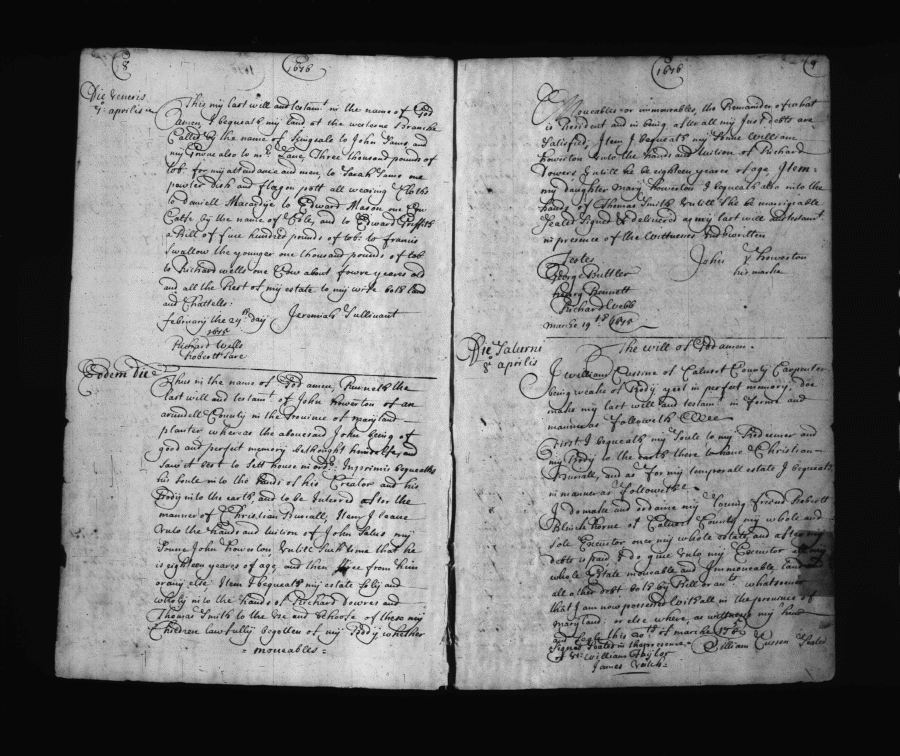 8
1676
Die Veneris
7o aprilis
This my last will and testamt in the name of God
amen I bequeath my land at the westerne Branche
Called by the name of to John James and
my Gowne also to Lane, Three thousand pounds of
tob: for my attendance and men, to Sarah Jamo one
pewter dish and flagon pott all wearing Cloths
to Daniell Macodye to Edward Mason one Cow
Calfe by the name of Cole, and to Edward Griffith
a Bill of five hundred pounds of tob: to francis
Swallow the younger one thousand pounds of tob
to Richard wells one Cow about fowre yeares old
and all the Rest of my estate to my wife both land
and Chattells:
february the 24th day Jeremiah Sullivant
1675
Richard Wells
Robertt
Eodem die
Thus in the name of God amen, Runneth the
last will and testamt of John Howerton of an
arundell County in the Province of maryland
planter whereas the abovesaid John being of
good and perfect memory bethought himselfe, and
saw it best to sett house in ordr: Imprimis bequeaths
his soule into the hands of his Creator and his
Body into the earth and to be Interred after the
manner of Christian Buriall, Item I leave
unto the hands and tuition of John Sales my
Sonne John Howerton, untill such time that he
is eighteen yeares of age, and then free from him
or any else Item I bequeath my estate soly and
wholy into the hands of Richard Towres and
Thomas Smith to the use and behoofe of these my
Children lawfully begotten of my Body whether
= moveables =
1676
9
Moveables or immoveables, the Remainder of what
is Resident and in being after all my Just debts are
Satisfied, Item I bequeath my Sonne William
howerton unto the hands and tuition of Richard
Towers untill he be eighteen yeares of age, Item:
my daughter Mary Howerton I bequeath also into the
hands of Thomas Smith untill she be marriageable
Sealed Signed & delivered as my last will and testamt
in presence of the Wittnesses underwritten
Testes
John Y Howerton
his marke
George Buttler
Henry Bennett
Richard Webb
marche 19th 1675
Die Saturni
8o aprilis
The will of God amen.
I William Cussine of Calvert County Carpenter
being weake of Body yett in perfect memory, doe
make my last will and testamt in forme and
manner as Followeth
First I bequeath my Soule to my Redeemer and
my Body to the earth there to have Christian
Buriall, and as for my temporall estate I bequeath
in manner as Followeth.
I do make and ordaine my loving friend Robertt
Blinkhorne of Calvert County my whole and
sole Executor over my whole estate, and after my
debts is paid I do give unto my Executor all my
whole Estate moveable and Immoveable, land and
all other debt both by Bill or acct: whatsoever
that I am now possessed withall in the province of
maryland: or else where, as wittness my hand
and Seale this 20th of marche 1675
Signed Sealed in the presence William Cussen Sealed
William Taylor
James